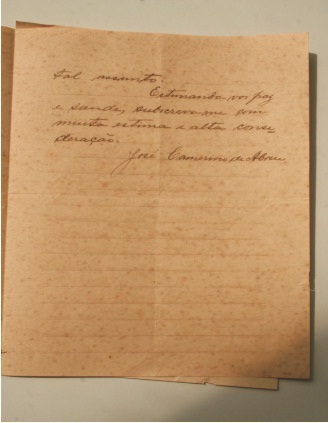 tal assunto.
Estimando vos paz
e saude, subscrevo-me com
muita estima e alta consi
deração.
José Cameron de Abreu.